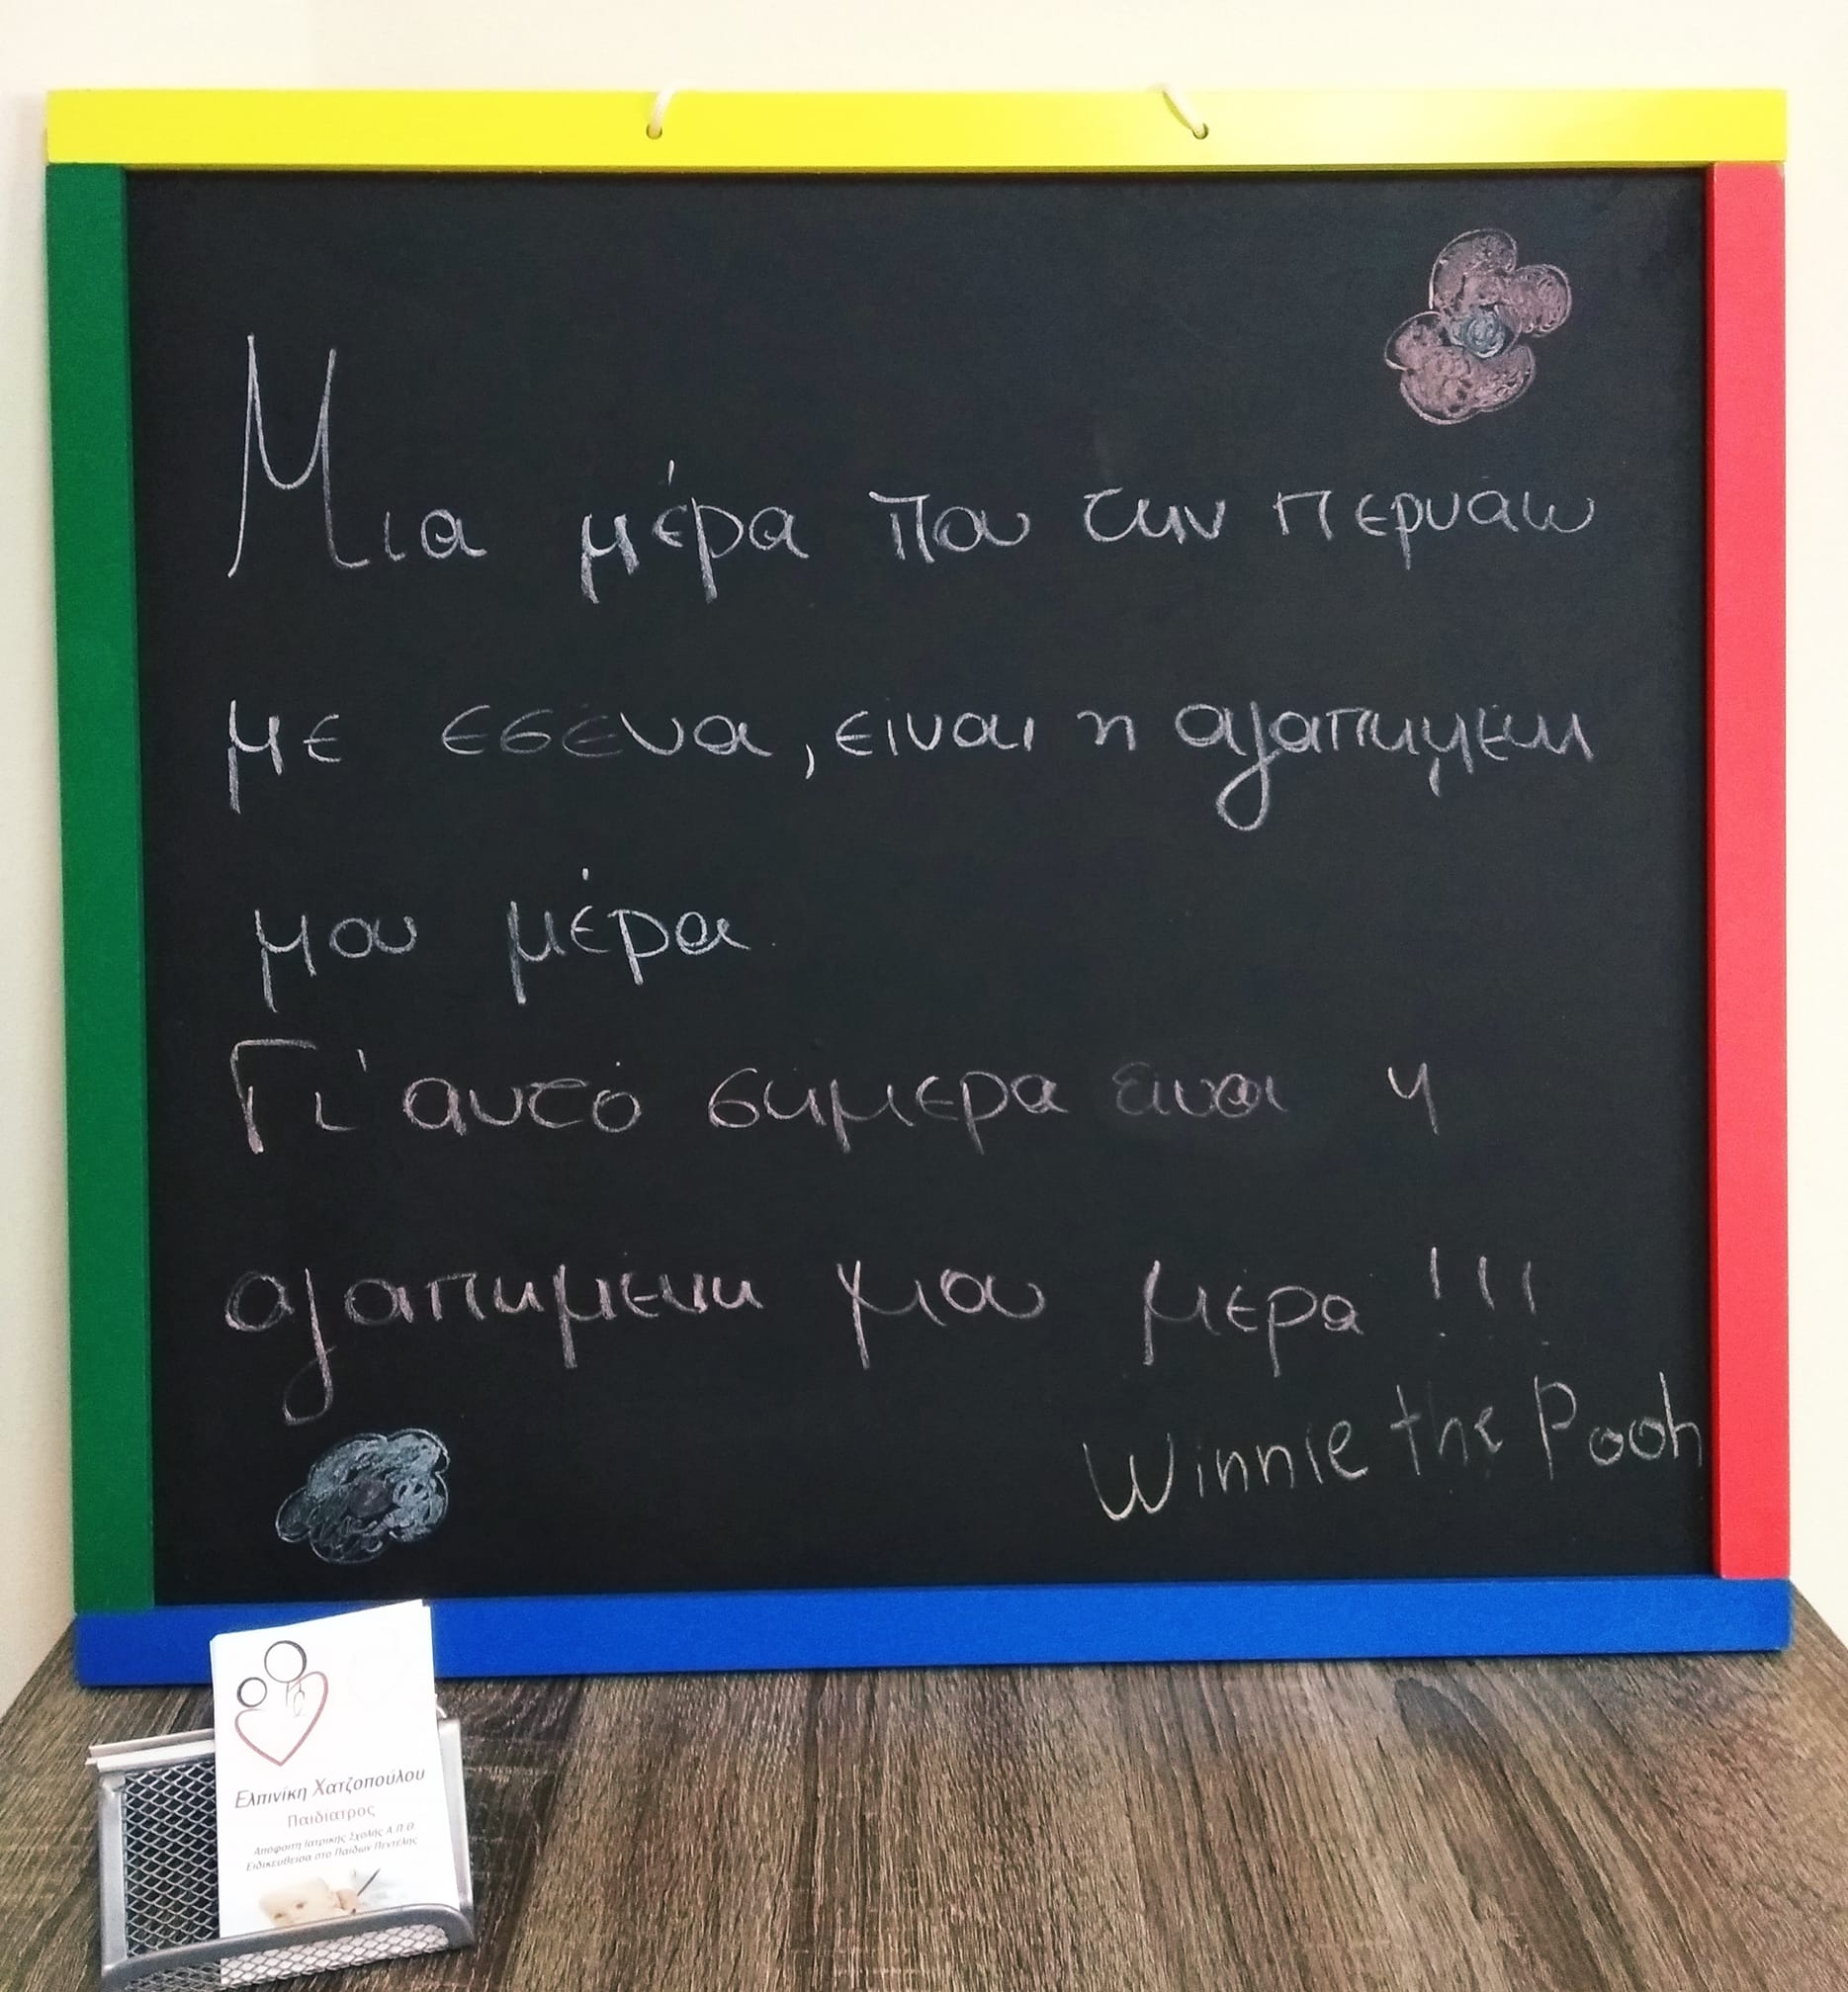 Μια μέρα που την περνάω
με εσένα, ειναι η αγαπημενη
μου μέρα.
Γι' αυτό σήμερα ειναι η
αγαπημενη μου μερα !!!
Winnie the Pooh
Ελπινίκη Χατζοπούλου
Παιδίατρος
Απόφοιτη Ιατρικής Σχολής Α.Π.Θ.
Ειδικευθείσα στο Παίδων Πεντέλης